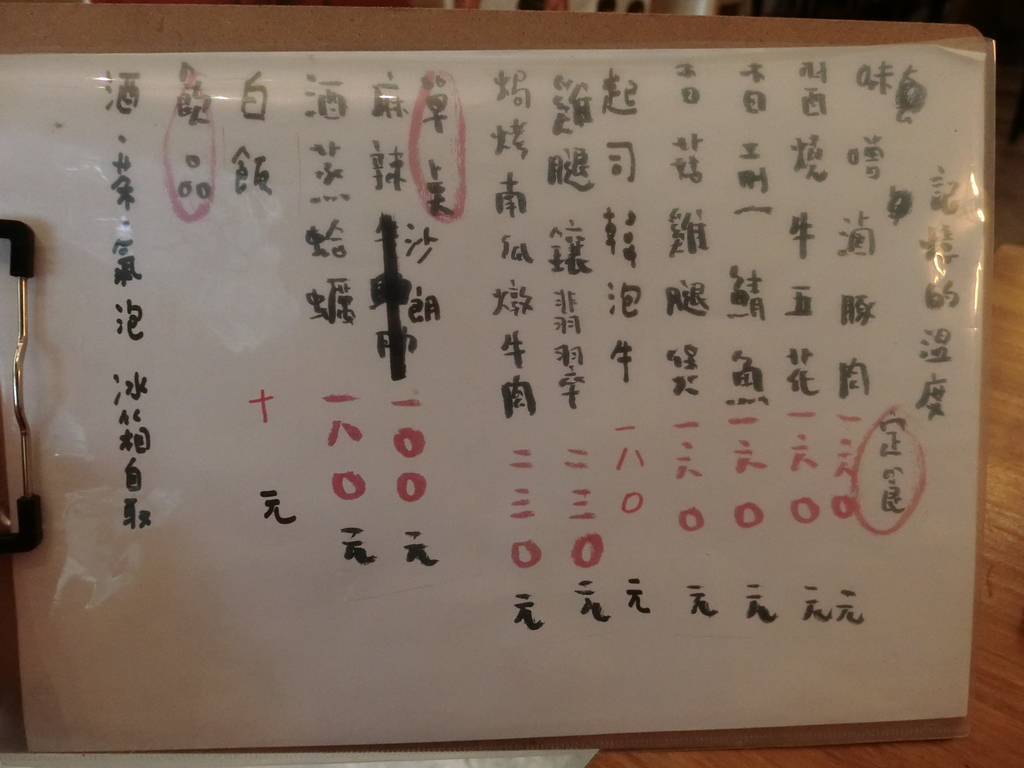 記憶的溫度
定食
味噌滷豚肉 一六0元
醬燒牛五花 一六0元
香煎鯖魚 一六0元
香菇雞腿煲 一六0元
起司韓泡牛 一八0元
雞腿鑲翡翠 二三0元
焗烤南瓜燉牛肉 二三0元
單點
麻辣沙朗 一00元
酒蒸蛤蠣 一八0元
白飯 十元
飲品
酒、茶、氣泡 冰箱自取